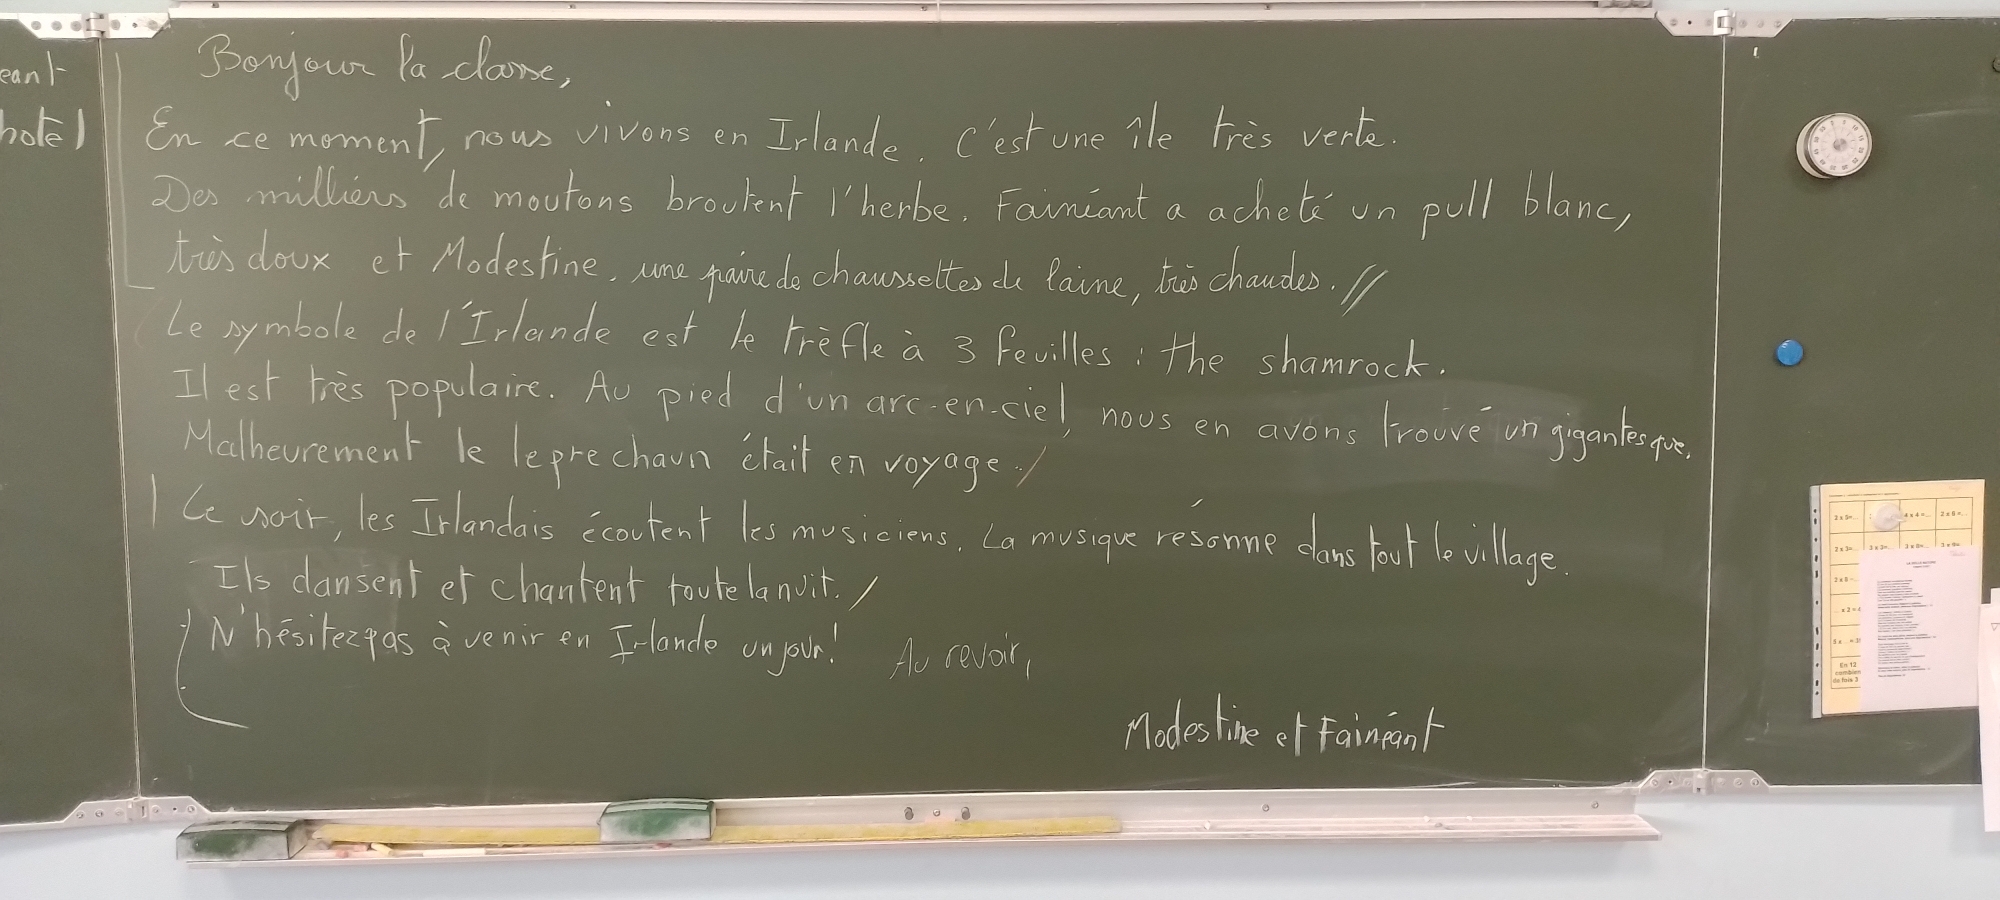 eant
hotel
Bonjour la classe,
En ce moment, nous vivons en Irlande. C'est une île très verte.
Des milliers de moutons broutent l'herbe. Fainéant a acheté un pull blanc,
très doux et Modestine, une paire de chaussettes de laine, très chaudes. //
Le symbole de l'Irlande est le trèfle à 3 feuilles : the shamrock.
Il est très populaire. Au pied d'un arc-en-ciel, nous en avons trouvé un gigantesque.
Malheurement le leprechaun était en voyage. /
Le soir, les Irlandais écoutent les musiciens. La musique résonne dans tout le village.
Ils dansent et chantent toute la nuit. /
N'hésitez pas à venir en Irlande un jour! Au revoir,
Modestine et Fainéant
2 x 5=...
4 x 4 =...
2 x 6 =...
2 x 3=...
En 12
combien
de fois 3